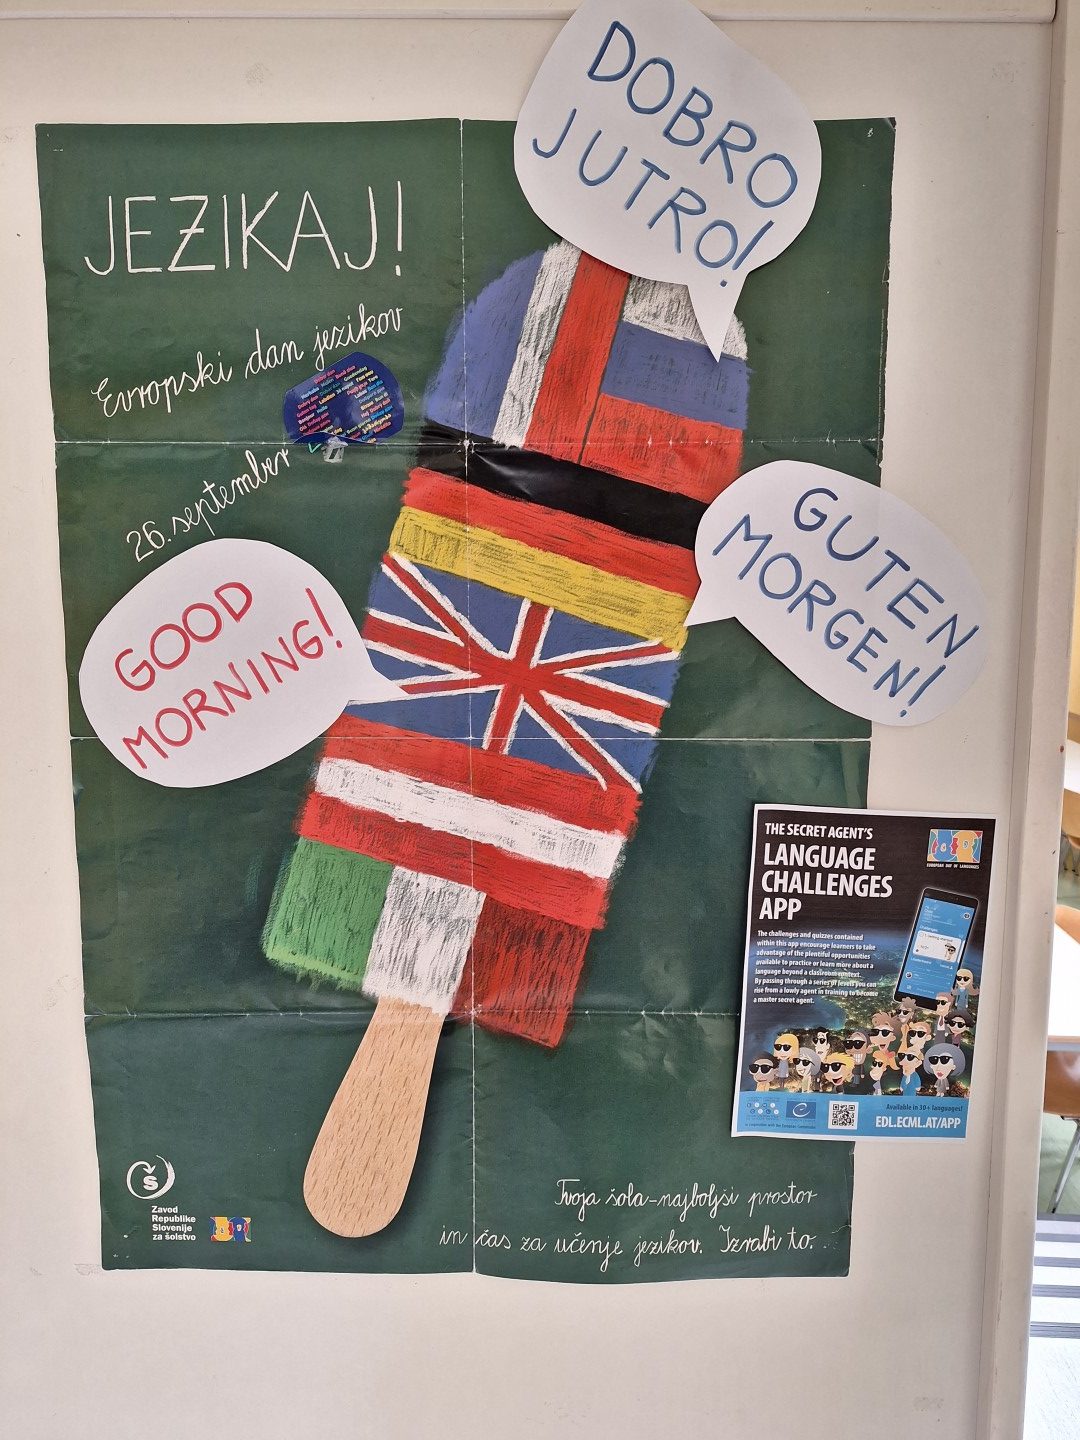 DOBRO
JUTRO!
JEZIKAJ!
Evropski dan jezikov
26. september
GUTEN
MORGEN!
GOOD
MORNING!
THE SECRET AGENT'S
LANGUAGE
CHALLENGES
APP
EUROPEAN DAY OF LANGUAGES
The challenges and quizzes contained
within this app encourage learners to take
advantage of the plentiful opportunities
available to practice or learn more about a
language beyond a classroom context.
By passing through a series of levels you can
rise from a lowly agent in training to become
a master secret agent.
Available in 30+ languages!
EDL.ECML.AT/APP
Zavod
Republike
Slovenije
za šolstvo
Tvoja šola-najboljši prostor
in čas za učenje jezikov. Izrabi to.